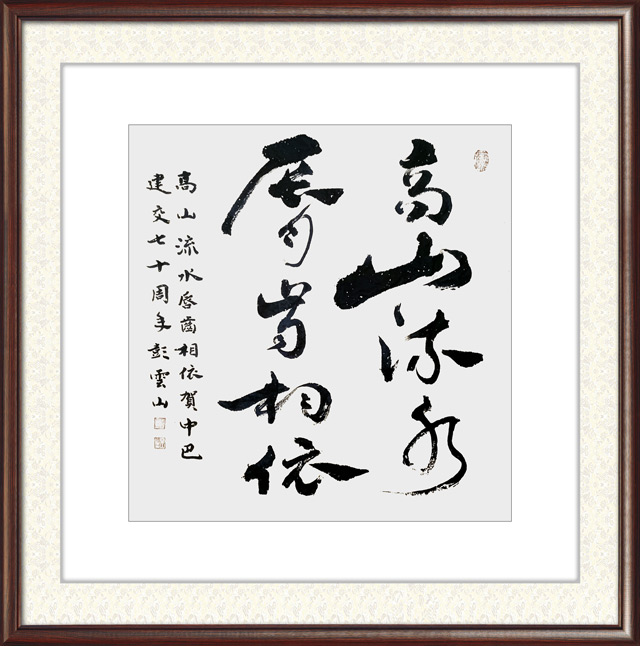 高山流水
唇齿相依
高山流水唇齒相依賀中巴
建交七十周年彭雲山